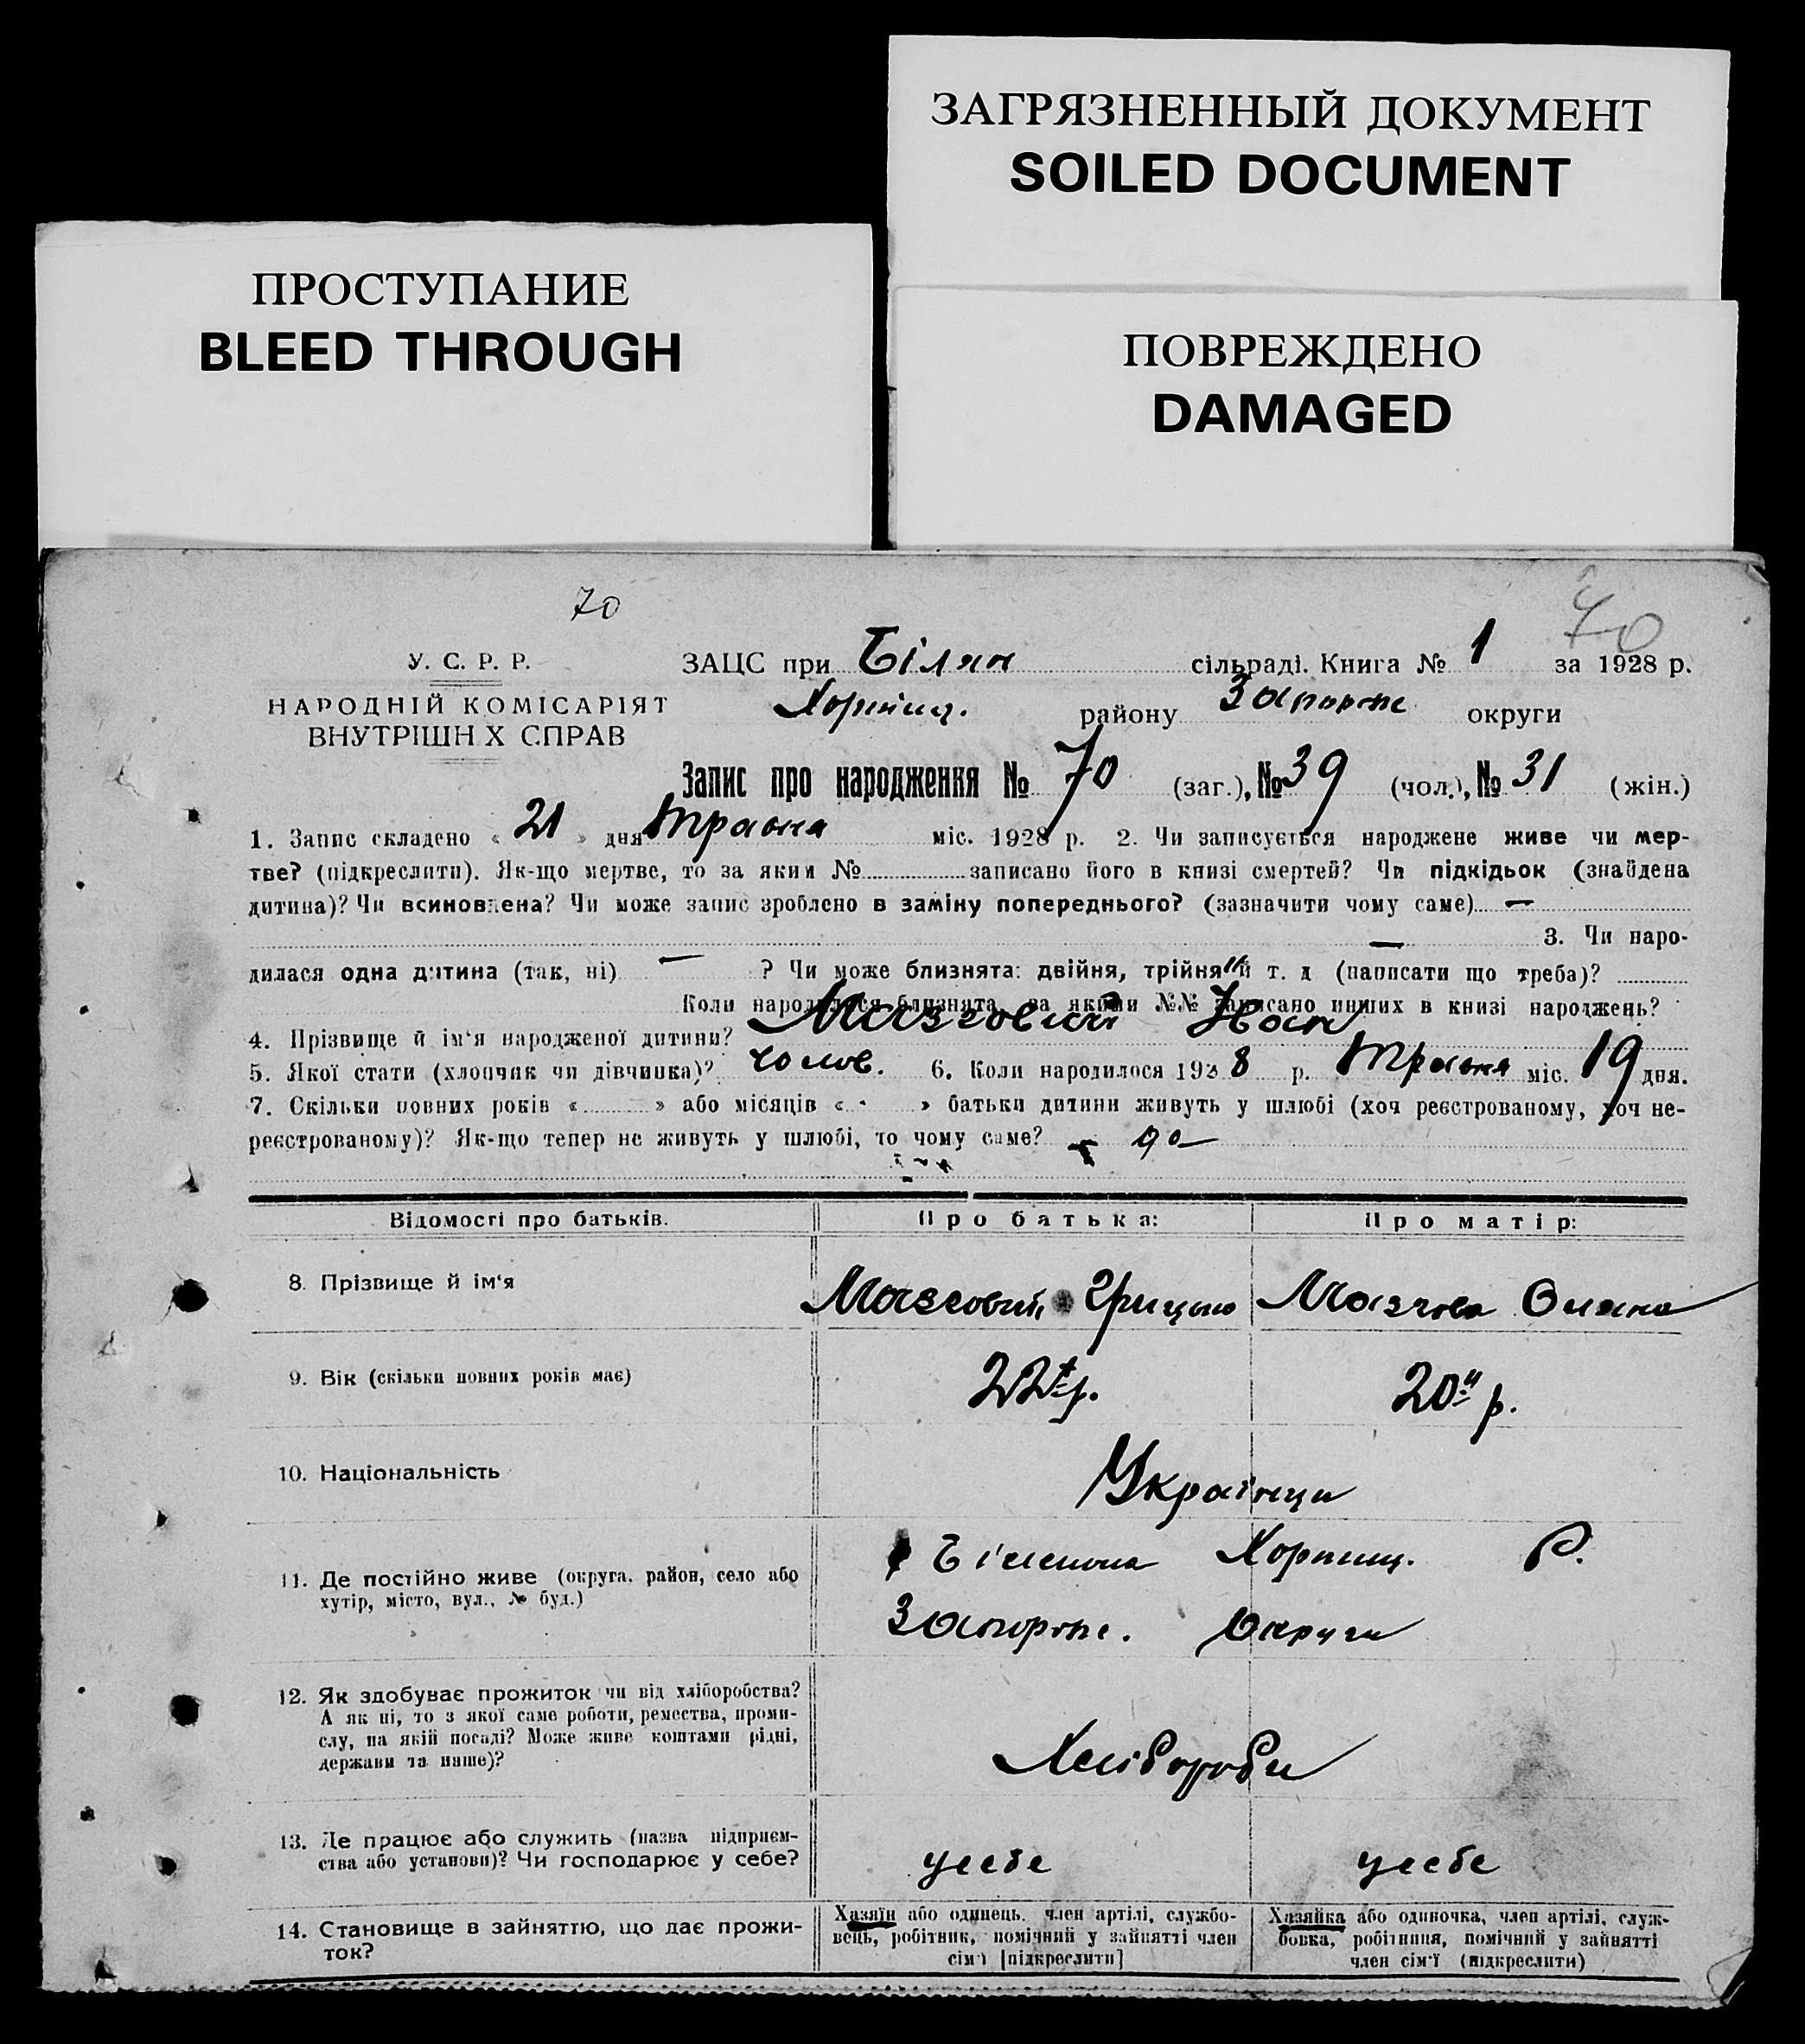 ЗАГРЯЗНЕННЫЙ ДОКУМЕНТ
SOILED DOCUMENT
ПРОСТУПАНИЕ
BLEED THROUGH
ПОВРЕЖДЕНО
DAMAGED
70
70
У. С. Р. Р.
НАРОДНІЙ КОМІСАРІЯТ
ВНУТРІШН Х СПРАВ
ЗАЦС при Білян сільраді. Книга № 1 за 1928 р.
Хортиц. району Запорож округи
Запис про народження № 70 (заг.), № 39 (чол.), № 31 (жін.)
1. Запис складено « 21 » дня Травня міс. 1928 р. 2. Чи записується народжене живе чи мер-
тве? (підкреслити). Як-що мертве, то за яким № записано його в книзі смертей? Чи підкідьок (знайдена
дитина)? Чи всиновлена? Чи може запис зроблено в заміну попереднього? (зазначити чому саме) —
— 3. Чи наро-
дилася одна дитина (так, ні) — ? Чи може близнята: двійня, трійня й т. д (написати що треба)?
Коли народилися близнята, за якими №№ записано инших в книзі народжень?
4. Прізвище й ім'я народженої дитини? Мазговий
5. Якої стати (хлопчик чи дівчинка)? чолов. 6. Коли народилося 192 8 р. Травня міс. 19 дня.
7. Скільки повних років « » або місяців « » батьки дитини живуть у шлюбі (хоч реєстрованому, хоч не-
реєстрованому)? Як-що тепер не живуть у шлюбі, то чому саме?
Відомості про батьків. Про батька: Про матір:
8. Прізвище й ім'я Мазговий Грицько Мазгова Оляна
9. Вік (скільки повних років має) 22 р. 20 р.
10. Національність Українци
11. Де постійно живе (округа, район, село або
хутір, місто, вул., № буд.)
Біленька Хортиц. Р.
Запорож. Округи
12. Як здобуває прожиток чи від хліборобства?
А як ні, то з якої саме роботи, ремества, проми-
слу, на якій посаді? Може живе коштами рідні,
держави та инше)?
Хлібороби
13. Де працює або служить (назва підприєм-
ства або установи)? Чи господарює у себе?
усебе усебе
14. Становище в зайняттю, що дає прожи-
ток?
Хазяїн або одинець, член артілі, службо-
вець, робітник, помічний у зайнятті член
сім'ї [підкреслити]
Хазяйка або одиночка, член артілі, служ-
бовка, робітниця, помічний у зайнятті
член сім'ї (підкреслити)